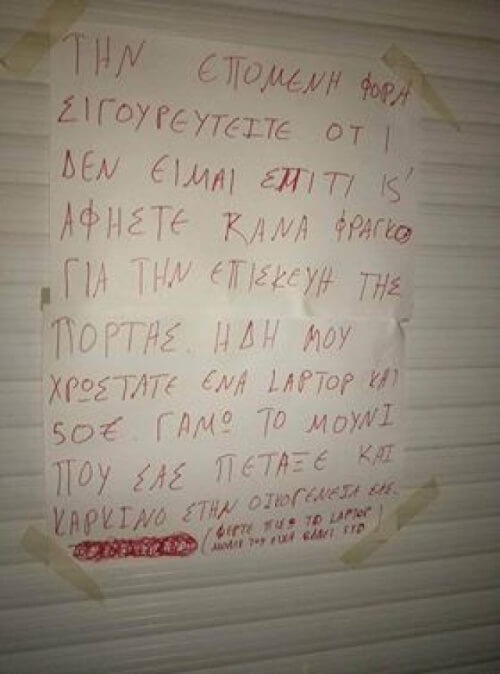 ΤΗΝ ΕΠΟΜΕΝΗ ΦΟΡΑ
ΣΙΓΟΥΡΕΥΤΕΙΤΕ ΟΤΙ
ΔΕΝ ΕΙΜΑΙ ΣΠΙΤΙ Κ'
ΑΦΗΣΤΕ ΚΑΝΑ ΦΡΑΓΚΟ
ΓΙΑ ΤΗΝ ΕΠΙΣΚΕΥΗ ΤΗΣ
ΠΟΡΤΗΣ. ΗΔΗ ΜΟΥ
ΧΡΩΣΤΑΤΕ ΕΝΑ LAPTOP ΚΑΙ
50€. ΓΑΜΩ ΤΟ ΜΟΥΝΙ
ΠΟΥ ΣΑΣ ΠΕΤΑΞΕ ΚΑΙ
ΚΑΡΚΙΝΟ ΣΤΗΝ ΟΙΚΟΓΕΝΕΙΑ ΣΑΣ.
(ΦΕΡΤΕ ΠΙΣΩ ΤΟ LAPTOP
ΜΟΛΙΣ ΤΟΥ ΕΙΧΑ ΒΑΛΕΙ SSD)